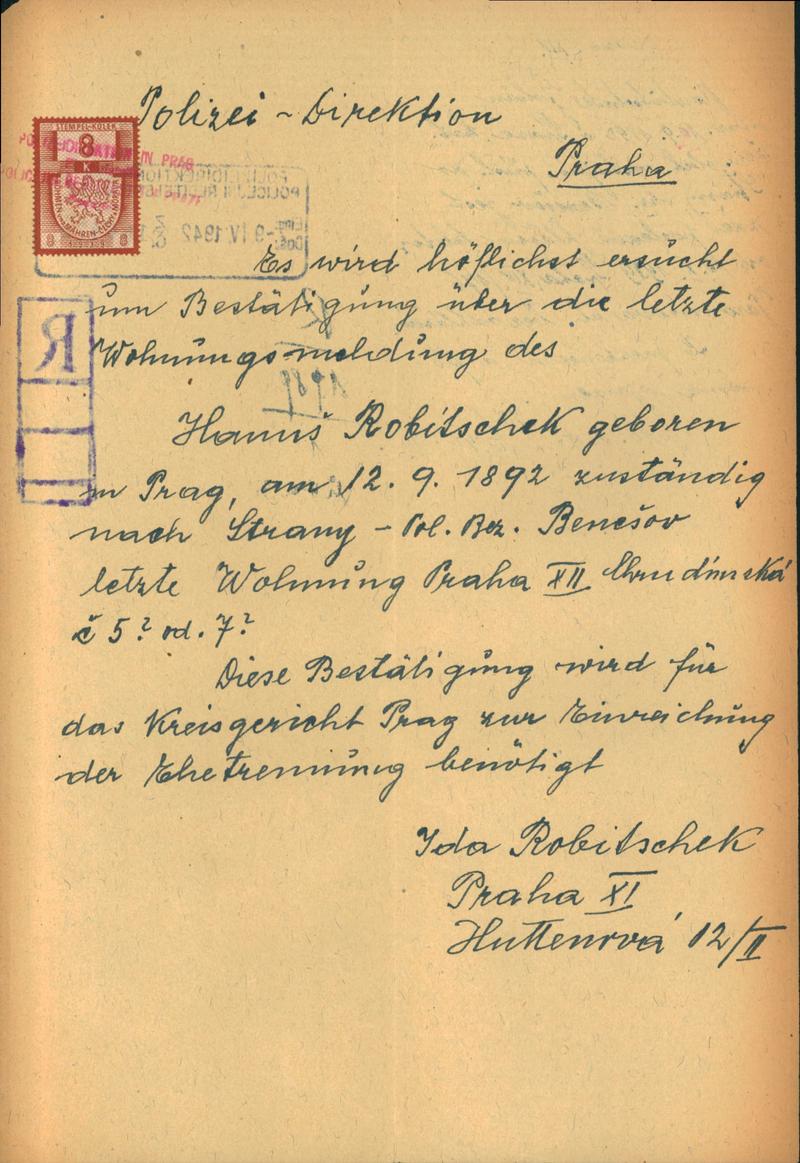 Polizei - Direktion
Praha
STEMPEL-KOLEK
8
K
BÖHMEN und MÄHREN-ČECHY a MORAVA
8 8
POLIZEIDIREKTION IN PRAG
POLIZEIDIREKTION
-9 IV 1942
R
Es wird höflichst ersucht
um Bestätigung über die letzte
Wohnungsmeldung des
Hanuš Robitschek geboren
in Prag, am 12. 9. 1892 zuständig
nach Strany - Pol. Bez. Benešov
letzte Wohnung Praha XII Chrudimská
č 5? od. 7?
Diese Bestätigung wird für
das Kreisgericht Prag zur Einreichung
der Ehetrennung benötigt
Ida Robitschek
Praha XI
Huttenová 12/II